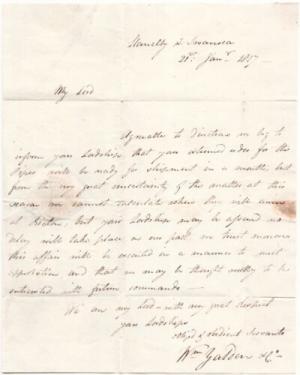 Llanelly by Swansea
21st Jany. 1817
My Lord
Agreeable to directions we beg to
inform your Lordship that your esteemed order for the
Pipes will be ready for shipment in a month, but
from the very great uncertainty of the weather at this
season we cannot calculate when they will arrive
at but your Lordship may be assured no
delay will take place on our part, we trust moreover
this affair will be executed in a manner to meet
approbation and that we may be thought worthy to be
entrusted with future commands —
We are my Lord – with very great respect
your Lordships
obliged & obedient Servants
Wm. & Co.